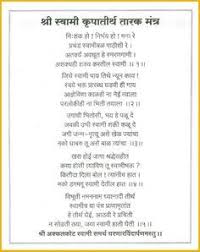 श्री स्वामी कृपातीर्थ तारक मंत्र
निःशंक हो ! निर्भय हो ! मना रे
प्रचंड स्वामीबळ पाठीशी रे ।
अतर्क्य अवधूत हे स्मरणगामी ।
अशक्यही शक्य करतील स्वामी ॥ १ ॥
जिथे स्वामी पाय तिथे न्यून काय !
स्वये भक्त प्रारब्ध घडवी ही माय
आज्ञेविणा काळही ना नेई त्याला
परलोकीही ना भिती तयाला ॥ २ ॥
उगाची भितोसी, भय हे पळू दे
जवळी उभी स्वामी शक्ती कळू दे
जगी जन्म-मृत्यू असे खेळ ज्यांचा
नको घाबरू तू असे बाळ त्यांचा ॥ ३ ॥
खरा होई जागा श्रद्धेसहीत
कसा होशी त्याविण तू स्वामीभक्त ?
कितीदा दिला बोल ! त्यांनीच हात !
नको डगमगू स्वामी देतील हात ॥ ४ ॥
विभूती नमननाम ध्यानादी तीर्थ
स्वामीच या पंच प्राणामृतांत
हे तीर्थ घेई, आठवी रे प्रचिती
न सोडती तया, ज्या स्वामी हाती ॥ ५ ॥
श्री अक्कलकोट स्वामी समर्थ चरणारविंदार्पणमस्तु ॥